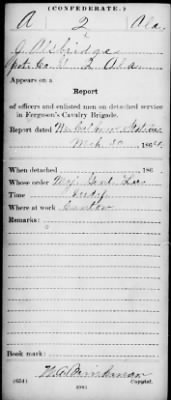 (CONFEDERATE.)
A 2 Ala.
J Alsbridge
Co. 2 Ala.
Appears on a
Report
of officers and enlisted men on detached service
in Ferguson's Cavalry Brigade.
Report dated Station
Mch 30, 1864.
When detached 186 .
Whose order Maj. Genl. Lee
Time Indef.
Where at work Canton
Remarks:
Book mark:
(654)
Copyist.